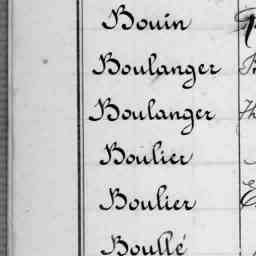 Bouin
Boulanger
Boulanger
Boulier
Boulier
Boullé